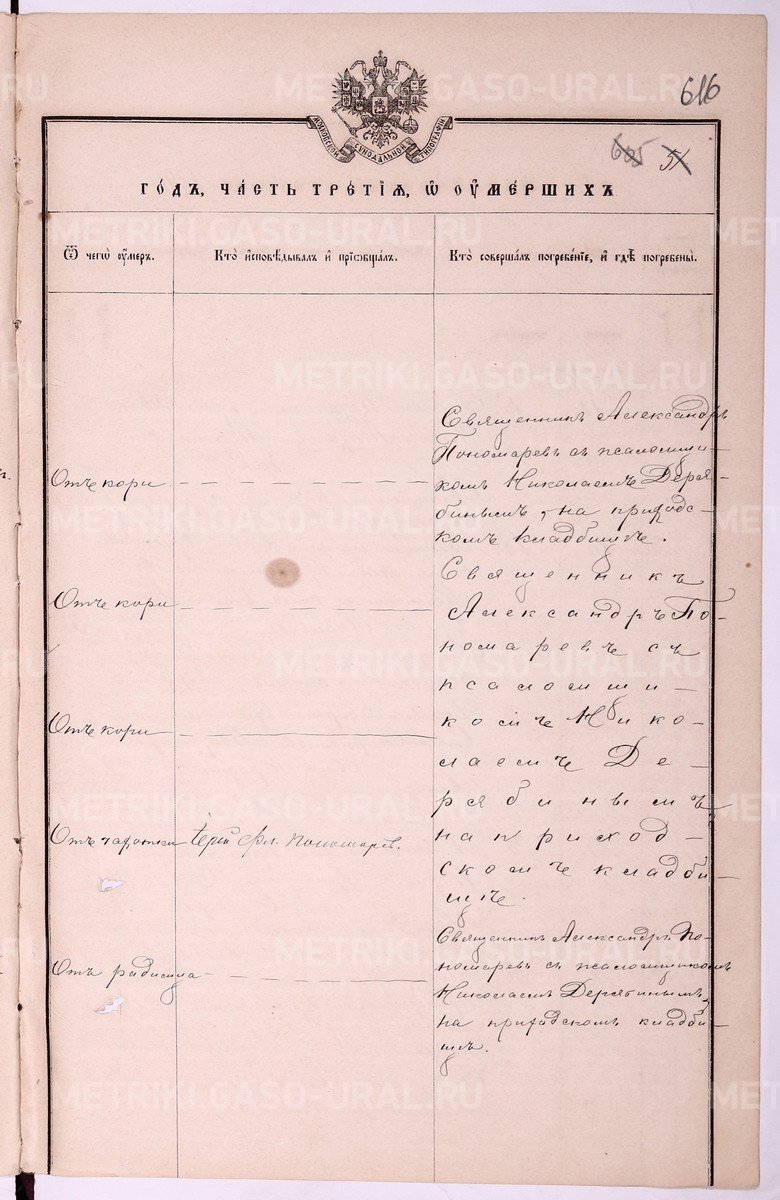 616
605 51
МОСКОВСКОЙ СѴНОДАЛЬНОЙ ТИПОГРАФІИ
ГОДЪ, ЧАСТЬ ТРЕТІЯ, Ѡ ОУМЕРШИХЪ
Ѿ чегѡ оумеръ.
Кто исповѣдывалъ и пріѡбщалъ.
Кто совершалъ погребеніе, и гдѣ погребены.
Отъ кори
Священникъ Александръ
Пономаревъ съ псаломщи-
комъ Николаемъ Деря-
бинымъ, на приходс-
комъ кладбищѣ.
Отъ кори
Священникъ
Александръ По-
номаревъ съ
псаломщи-
комъ Нико-
лаемъ Де-
рябинымъ
на приход-
скомъ кладби-
щѣ.
Отъ кори
Отъ чахотки
Іерей Ал. Пономаревъ.
Отъ родимца
Священникъ Александръ По-
номаревъ съ псаломщикомъ
Николаемъ Дерябинымъ,
на приходскомъ кладби-
щѣ.
METRIKI.GASO-URAL.RU